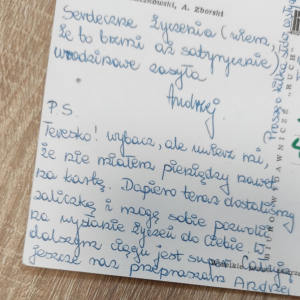 czkowski, A. Zborski
Serdeczne życzenia (wiem,
że to brzmi aż satyrycznie)
urodzinowe zasyła
Andrzej
P.S.
Teresko! wybacz, ale uwierz mi,
że nie miałem pieniędzy nawet
na kartę. Dopiero teraz dostaliśmy
zaliczkę i mogę sobie pozwolić
na wysłanie życzeń do Ciebie. W
dalszym ciągu jest super. Całuję i
jeszcze raz przepraszam Andrzej
BIURO WYDAWNICZE "RUCH"